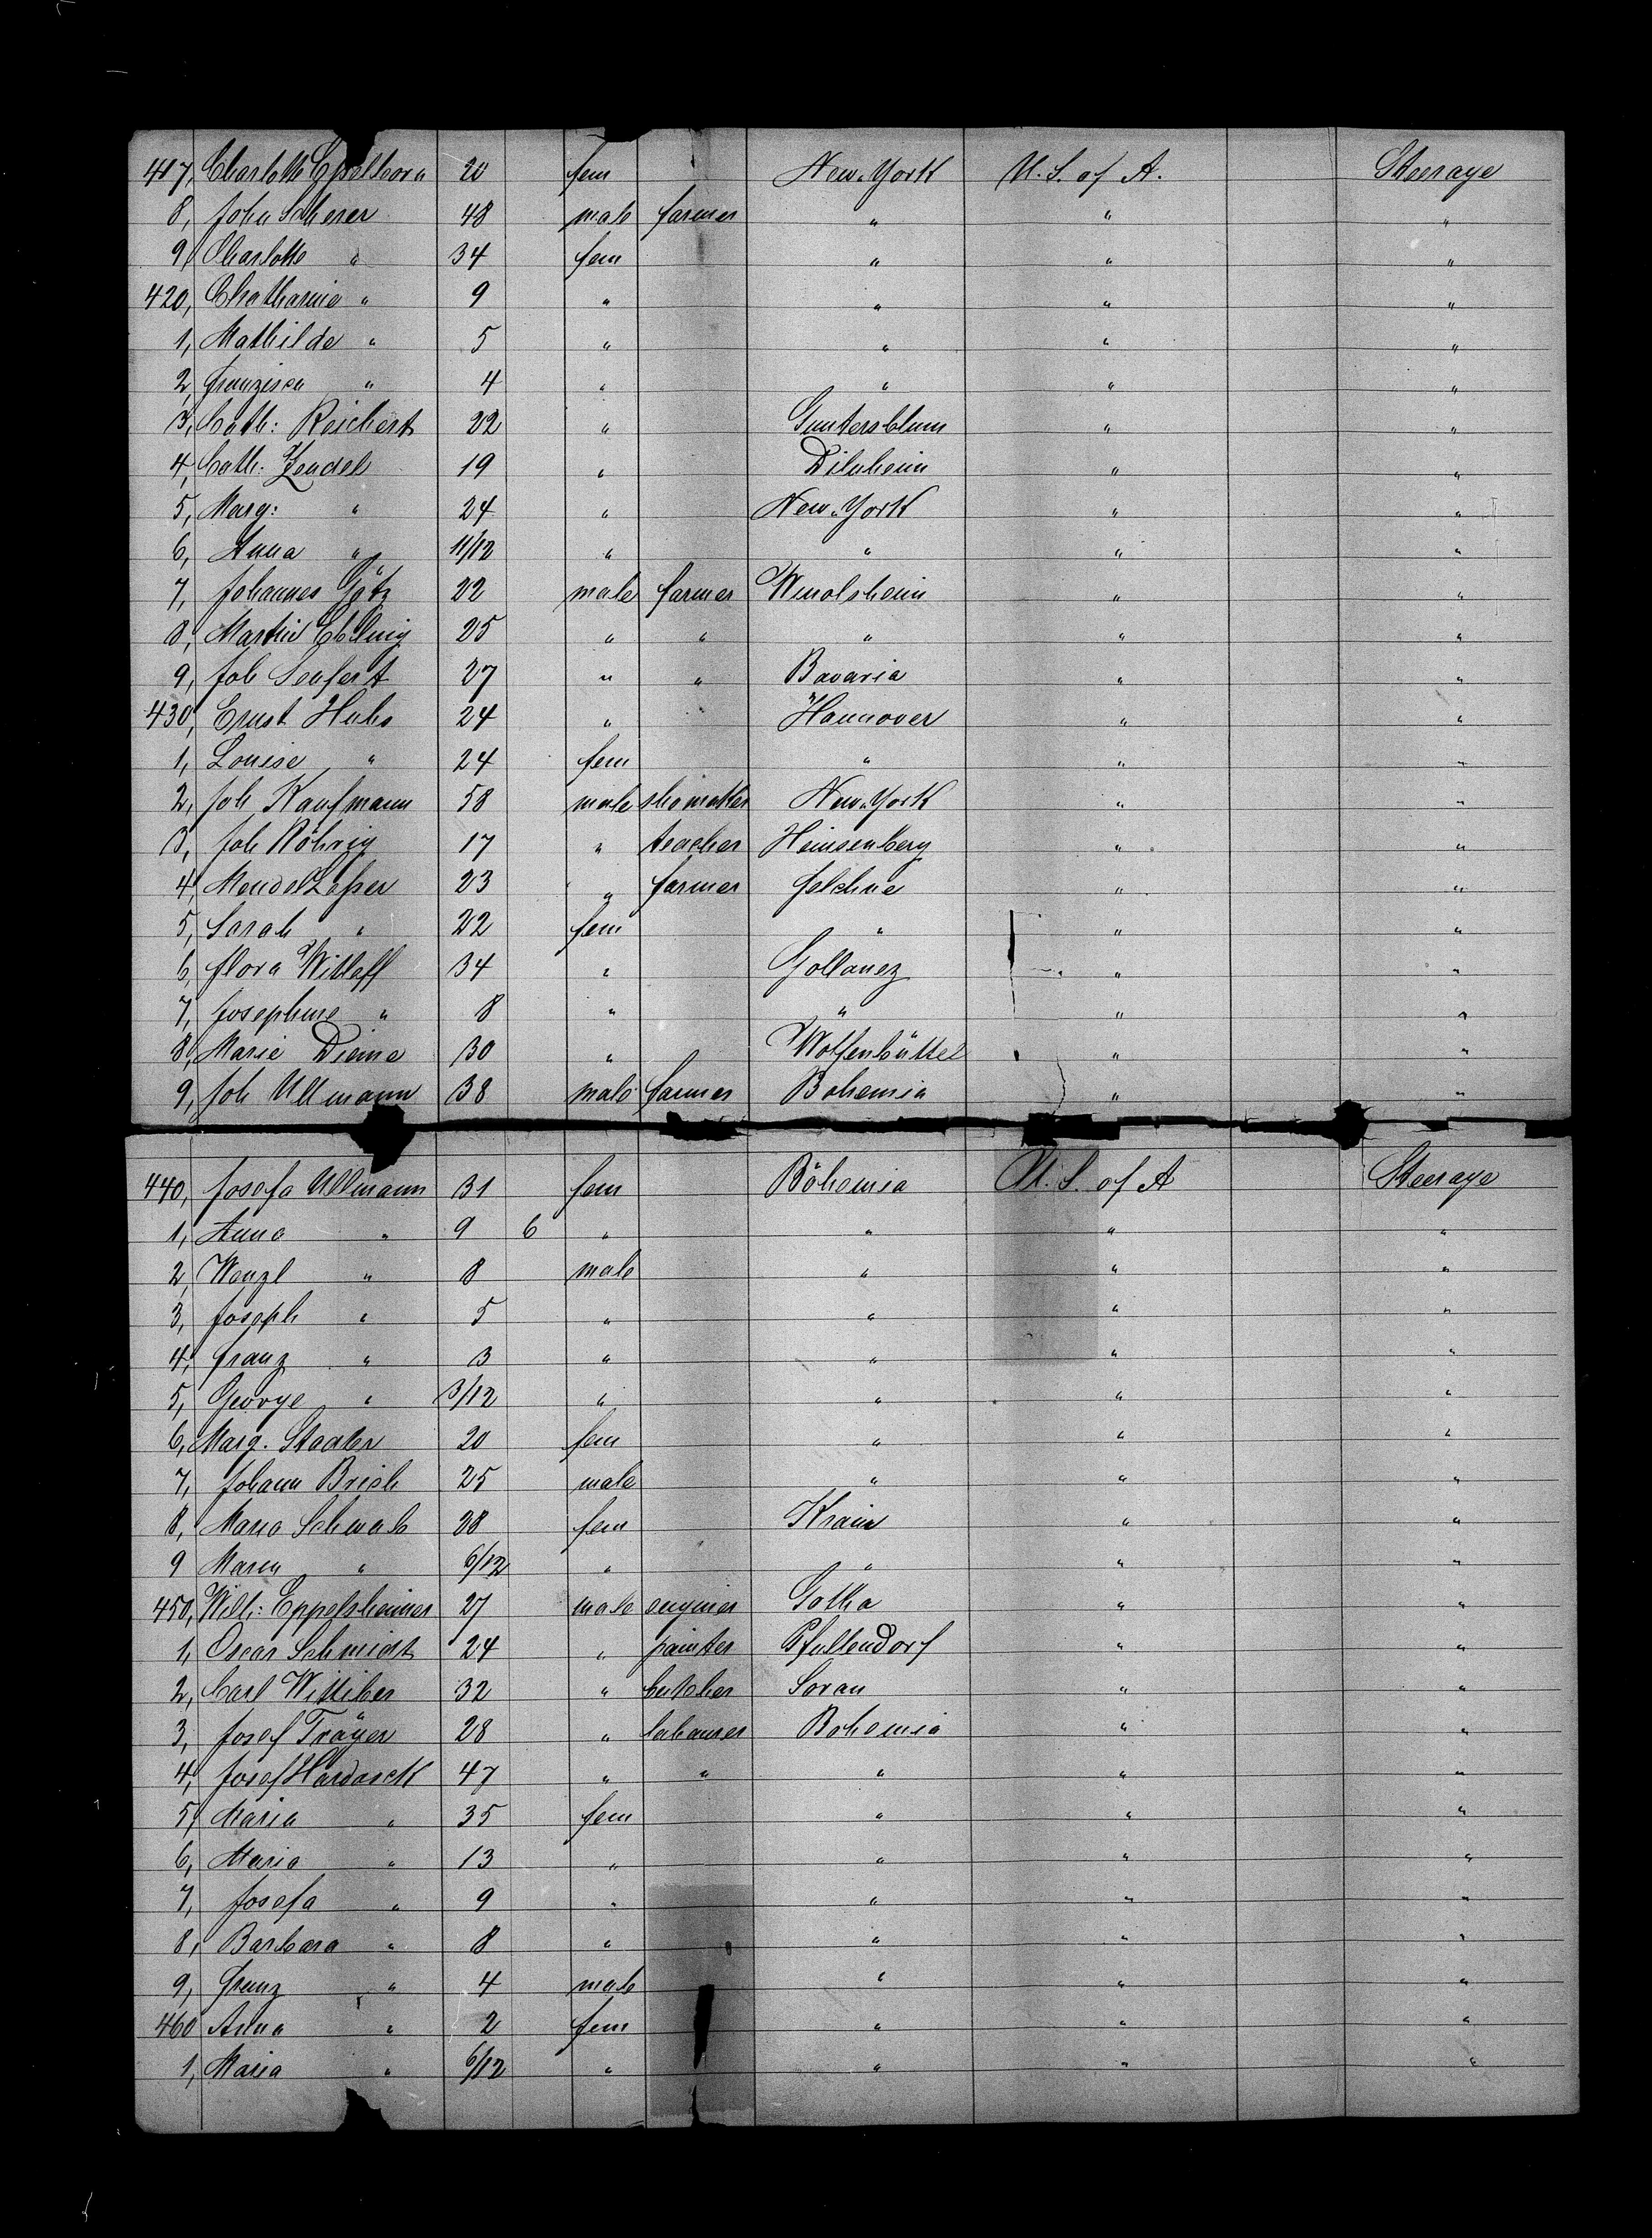 417, Charlotte 20 fem New-York U. S. of A. Steerage
8, John Scherer 48 male farmer " " "
9, Charlotte " 34 fem " " "
420, Chatharine " 9 " " " "
1, Mathilde " 5 " " " "
2, Franzisca " 4 " " " "
3, Cath: Reichert 22 " Guntersblum " "
4, Cath: Zendel 19 " " "
5, Marg: " 24 " New-York " "
6, Anna " 11/12 " " " "
7, Johannes Götz 22 male farmer " "
8, Martin Ebling 25 " " " " "
9, Joh Senfert 27 " " Bavaria " "
430, Ernst Hubs 24 " Hannover " "
1, Louise " 24 fem " " "
2, Joh Kaufmann 58 male shomaker New-York " "
3, Joh Röhrig 17 " teacher Heinsenberg " "
4, Mendel Lesser 23 " farmer " "
5, Sarah " 22 fem " " "
6, Flora 34 " Gollancz " "
7, Josephine " 8 " " " "
8, Marie Dieme 30 " Wolfenbüttel " "
9, Joh Ullmann 38 male farmer Bohemia " "
440, Josefa Ullmann 31 fem Böhemia U. S. of A Steerage
1, Anna " 9 6 " " " "
2, Wenzl " 8 male " " "
3, Joseph " 5 " " " "
4, Franz " 3 " " " "
5, George " 3/12 " " " "
6, Marg. Stadler 20 fem " " "
7, Johann Brich 25 male " " "
8, Maria Schwab 28 fem Krain " "
9 Maria " 6/12 " " " "
450, Wilh: Eppelsheimer 27 male enginer Gotha " "
1, Oscar Schmidt 24 " painter Pfullendorf " "
2, Carl Wittiber 32 " butcher Sorau " "
3, Josef Träger 28 " labourer Bohemia " "
4, Josef Hardasck 47 " " " " "
5, Maria " 35 fem " " "
6, Maria " 13 " " " "
7, Josefa " 9 " " " "
8, Barbara " 8 " " " "
9, Franz " 4 male " " "
460 Anna " 2 fem " " "
1, Maria " 6/12 " " " "